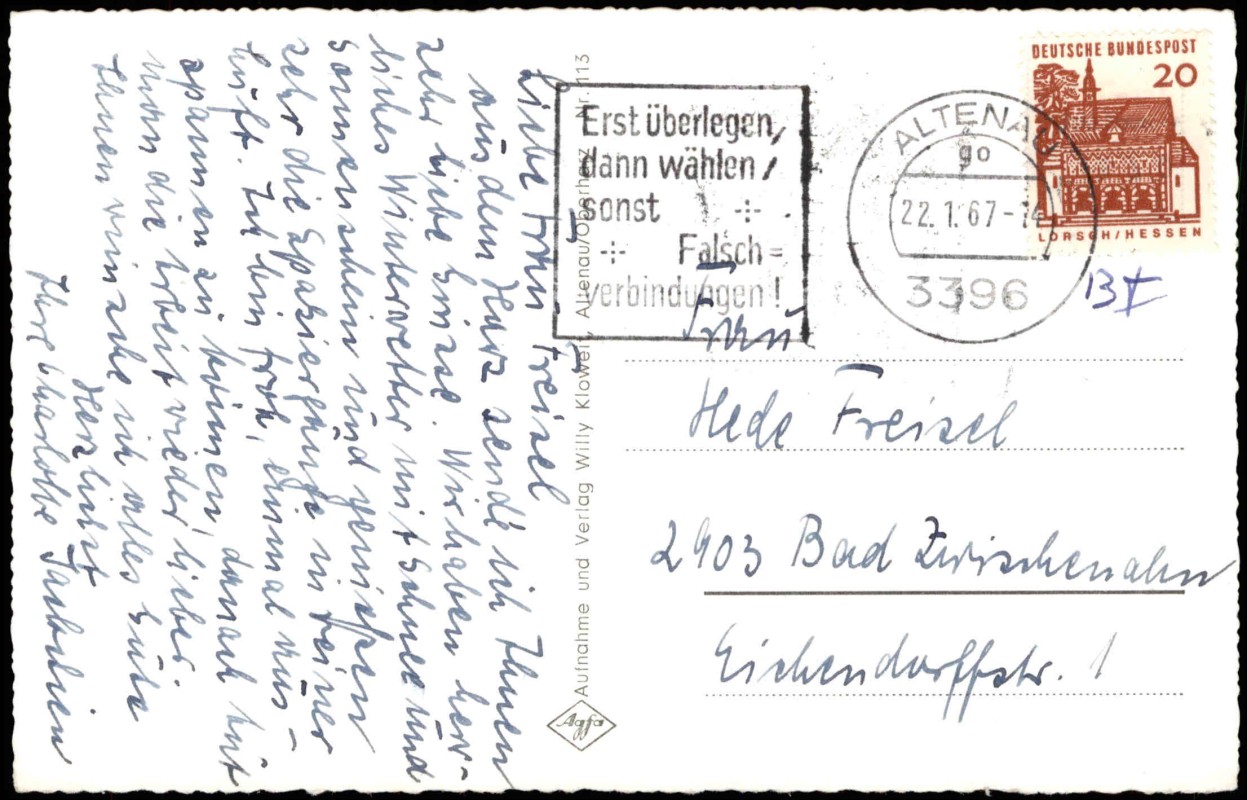 Liebe Frau Freisel
aus dem Harz sende ich Ihnen
sehr liebe Grüsse. Wir haben herr-
liches Winterwetter mit Schnee und
Sonnenschein und genießen
sehr die Spaziergänge in reiner
Luft. Ich bin froh, einmal aus-
spannen zu können, danach tut
man die Arbeit wieder lieber
Ihnen wünsche ich alles Gute
Herzlichst
Ihre Charlotte
Aufnahme und Verlag Willy Kloweit, Altenau/Oberharz Nr. 113
Agfa
Erst überlegen,
dann wählen,
sonst
Falsch=
verbindungen!
ALTENAU
go
22.1.67-14
3396
DEUTSCHE BUNDESPOST
20
LORSCH/HESSEN
Frau
Hede Freisel
2903 Bad Zwischenahn
Eichendorffstr. 1